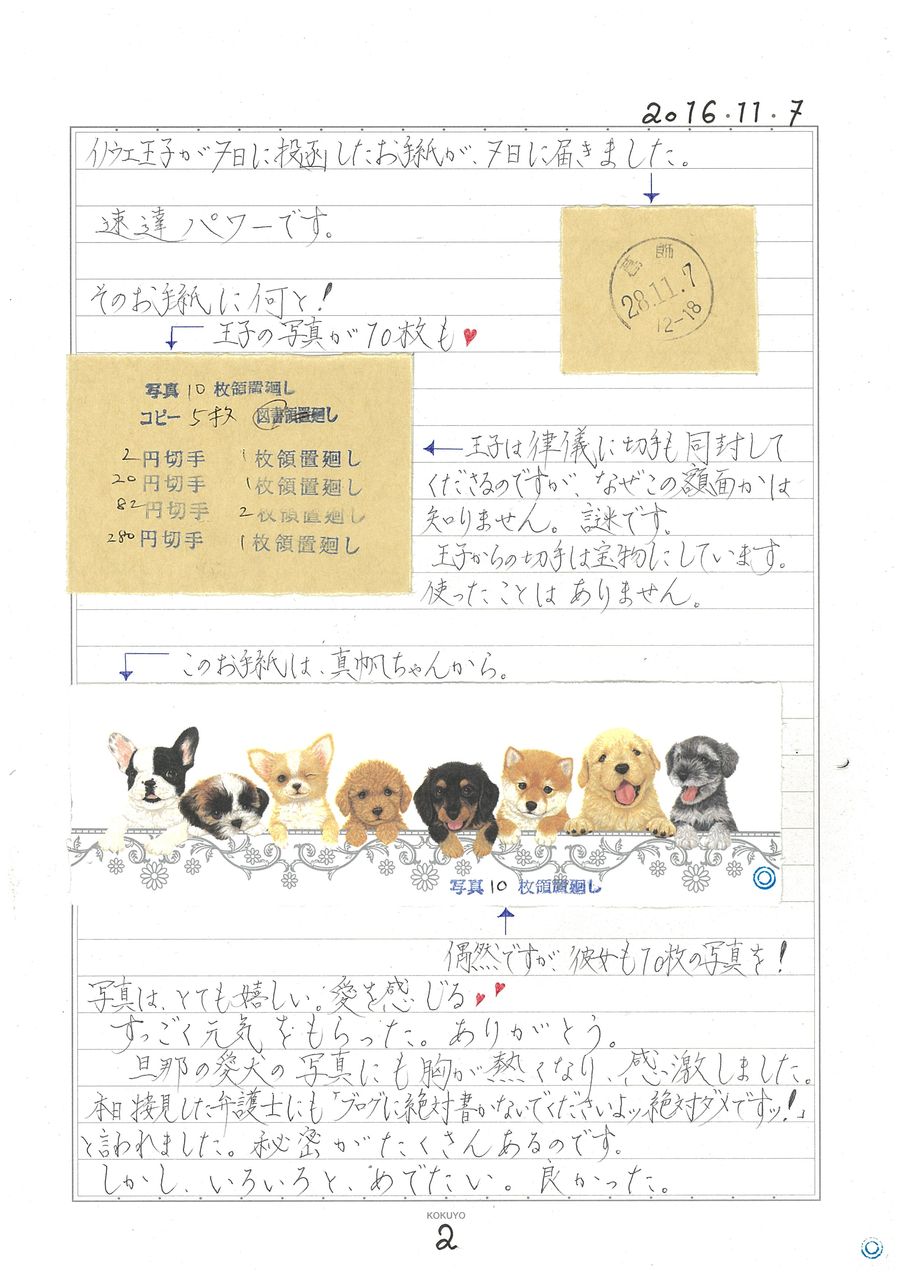 2016.11.7
イノウエ王子が7日に投函したお手紙が、7日に届きました。
速達パワーです。
葛飾
28.11.7
12-18
そのお手紙に何と!
王子の写真が10枚も♥
写真 10 枚領置廻し
コピー 5枚 図書領置廻し
2円切手 1枚領置廻し
20円切手 1枚領置廻し
82円切手 2枚領置廻し
280円切手 1枚領置廻し
王子は律儀に切手も同封して
くださるのですが、なぜこの額面かは
知りません。謎です。
王子からの切手は宝物にしています。
使ったことはありません。
このお手紙は、真帆ちゃんから。
写真 10 枚領置廻し
偶然ですが、彼女も10枚の写真を!
写真は、とても嬉しい。愛を感じる♥♥
すっごく元気をもらった。ありがとう。
旦那の愛犬の写真にも胸が熱くなり、感激しました。
本日接見した弁護士にも「ブログに絶対書かないでくださいよッ、絶対ダメですッ!」
と言われました。秘密がたくさんあるのです。
しかし、いろいろと、めでたい。良かった。
KOKUYO
2